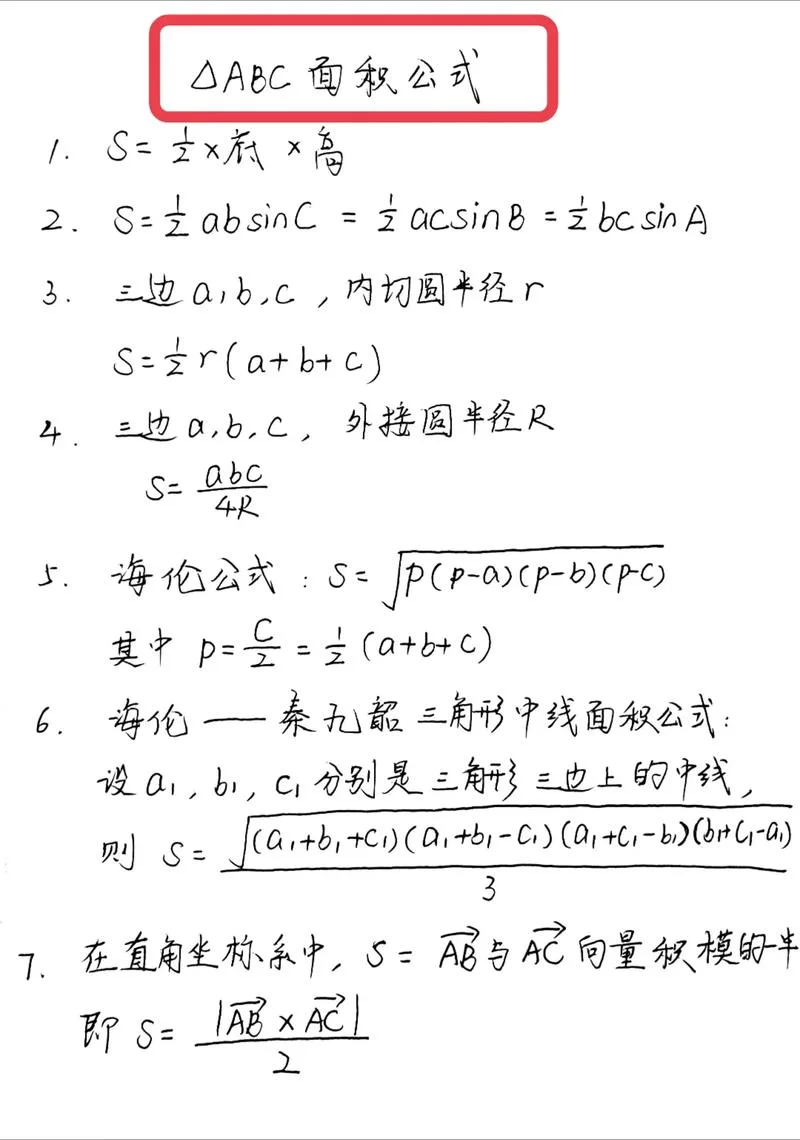 △ABC 面积公式
1. S=½×底×高
2. S=½absinC=½acsinB=½bcsinA
3. 三边a,b,c,内切圆半径r
S=½r(a+b+c)
4. 三边a,b,c,外接圆半径R
S=abc/4R
5. 海伦公式:S=√p(p-a)(p-b)(p-c)
其中 p=C/2=½(a+b+c)
6. 海伦——秦九韶三角形中线面积公式:
设a₁,b₁,c₁分别是三角形三边上的中线,
则 S=√(a₁+b₁+c₁)(a₁+b₁-c₁)(a₁+c₁-b₁)(b₁+c₁-a₁)/3
7. 在直角坐标系中,S=AB→与AC→向量积模的一半
即 S=|AB→×AC→|/2